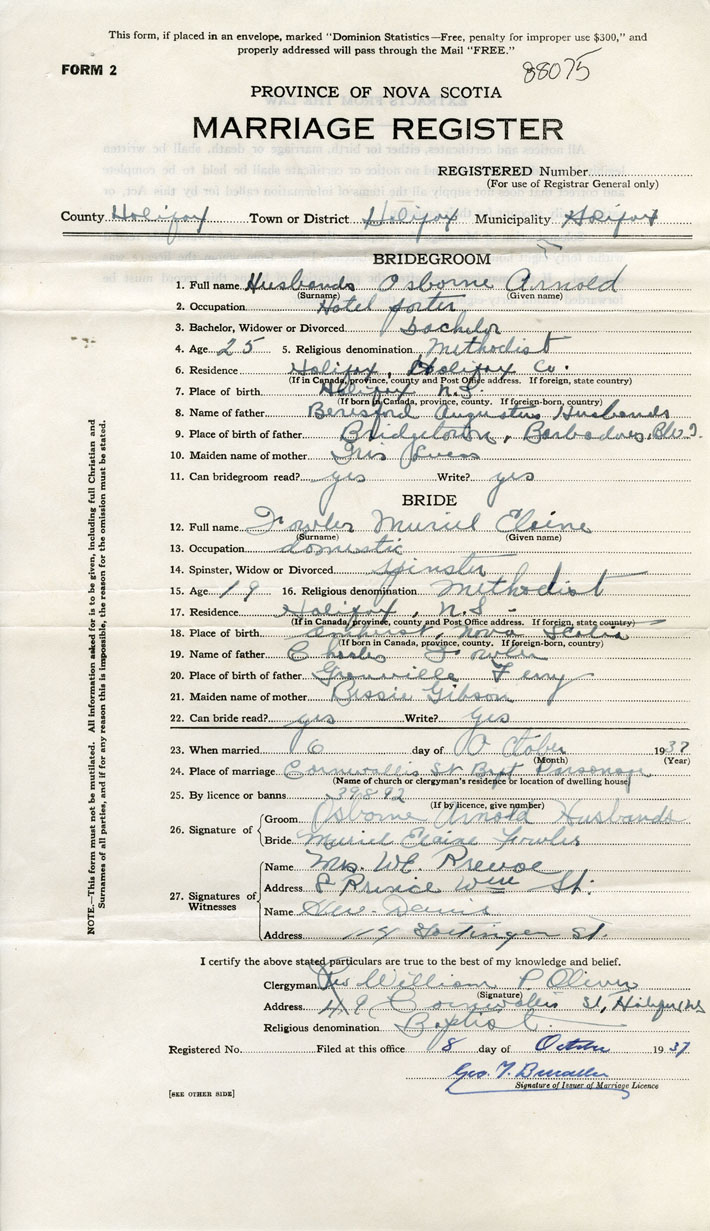 This form, if placed in an envelope, marked "Dominion Statistics—Free, penalty for improper use $300," and
properly addressed will pass through the Mail "FREE."
FORM 2
88075
PROVINCE OF NOVA SCOTIA
MARRIAGE REGISTER
REGISTERED Number
(For use of Registrar General only)
County Halifax Town or District Halifax Municipality Halifax
BRIDEGROOM
1. Full name Husbands Osborne Arnold
(Surname) (Given name)
2. Occupation Hotel porter
3. Bachelor, Widower or Divorced bachelor
4. Age 25 5. Religious denomination Methodist
6. Residence Halifax, Halifax Co.
(If in Canada, province, county and Post Office address. If foreign, state country)
7. Place of birth Halifax N.S.
(If born in Canada, province, county. If foreign-born, country)
8. Name of father Beresford Augustus Husbands
9. Place of birth of father Bridgetown, Barbadoes, B.W.I.
10. Maiden name of mother Iris Lucas
11. Can bridegroom read? yes Write? yes
BRIDE
12. Full name Fowler Muriel Elaine
(Surname) (Given name)
13. Occupation domestic
14. Spinster, Widow or Divorced spinster
15. Age 19 16. Religious denomination Methodist
17. Residence Halifax, N.S.
(If in Canada, province, county and Post Office address. If foreign, state country)
18. Place of birth Amherst, Nova Scotia
(If born in Canada, province, county. If foreign-born, country)
19. Name of father Charles Fowler
20. Place of birth of father Granville Ferry
21. Maiden name of mother Bessie Gibson
22. Can bride read? yes Write? yes
23. When married 6 day of October 1937
(Month) (Year)
24. Place of marriage Cornwallis St Bapt Parsonage
(Name of church or clergyman's residence or location of dwelling house)
25. By licence or banns 39892
(If by licence, give number)
26. Signature of
Groom Osborne Arnold Husbands
Bride Muriel Elaine Fowler
27. Signatures of Witnesses
Name Mrs. W.C.
Address 8 Prince Wm St.
Name
Address 14 Gottingen St.
I certify the above stated particulars are true to the best of my knowledge and belief.
Clergyman Rev William P Oliver
(Signature)
Address Cornwallis St, Halifax, NS
Religious denomination Baptist
Registered No. Filed at this office 8 day of October 1937
Geo. T.
Signature of Issuer of Marriage Licence
[SEE OTHER SIDE]
NOTE.—This form must not be mutilated. All information asked for is to be given, including full Christian and
Surnames of all parties, and if for any reason this is impossible, the reason for the omission must be stated.